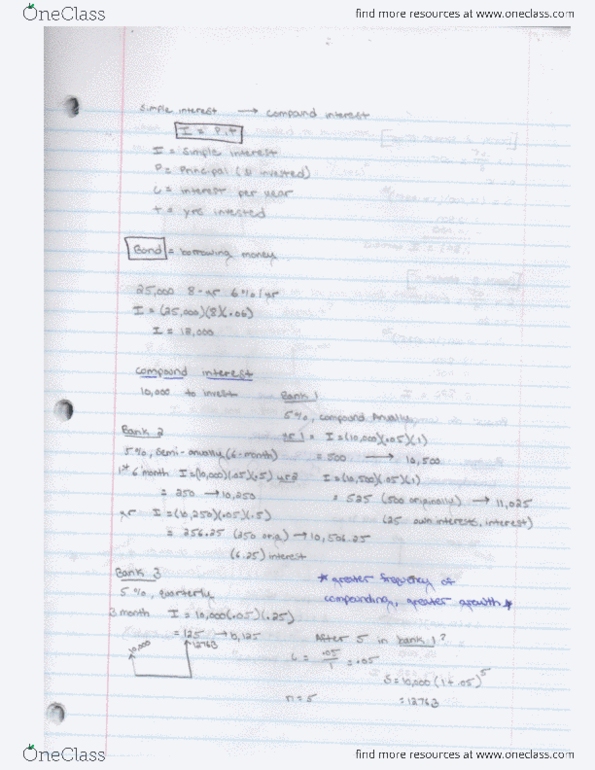 OneClass
find more resources at www.oneclass.com
simple interest → compound interest
I = P.i.t
I = simple interest
P = Principal ($ invested)
i = interest per year
t = yrs invested
Bond = borrowing money
25,000 8-yr 6%/yr
I = (25,000)(8)(.06)
I = 12,000
compound interest
10,000 to invest
Bank 1
5%, compound Anually
yr 1 = I=(10,000)(.05)(1)
= 500 → 10,500
yr 2 I=(10,500)(.05)(1)
= 525 (500 originally) → 11,025
(25 own interests, interest)
Bank 2
5%, semi-anually (6-month)
1st 6 month I=(10,000)(.05)(.5)
= 250 → 10,250
yr I=(10,250)(.05)(.5)
= 256.25 (250 orig.) → 10,506.25
(6.25) interest
Bank 3
5%, quarterly
3 month I = 10,000(.05)(.25)
= 125 → 10,125
* greater frequency of
compounding, greater growth *
After 5 in bank 1?
i = .05/1 = .05
n = 5
S = 10,000 (1+.05)^5
= 12763
10,000
12763
OneClass
find more resources at www.oneclass.com